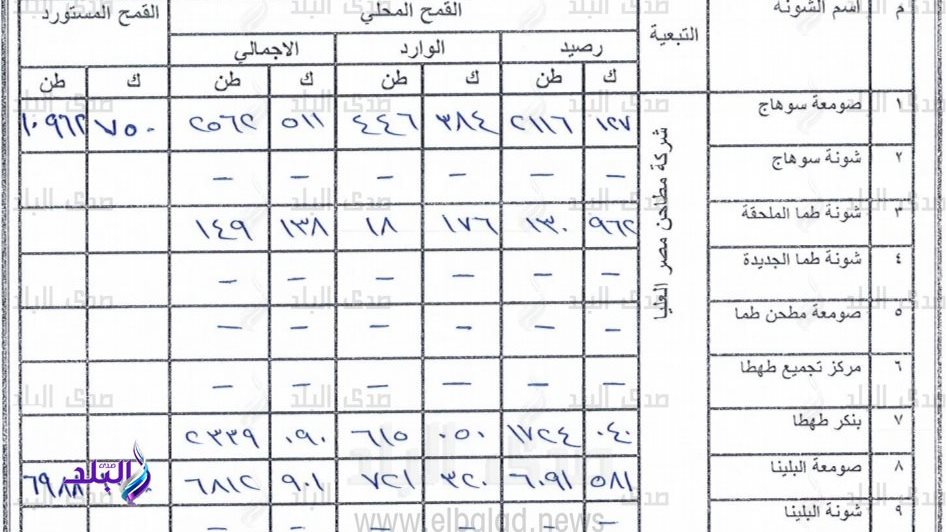 م اسم الشونة التبعية القمح المحلي القمح المستورد
رصيد الوارد الاجمالي
ك طن ك طن ك طن ك طن
١ صومعة سوهاج ١٢٧ ٢١١٦ ٣٨٤ ٤٤٦ ٥١١ ٢٥٦٢ ٧٥٠ ١٠٩٦٢
شركة مطاحن مصر العليا
٢ شونة سوهاج – – – – – –
٣ شونة طما الملحقة ٩٦٢ ١٣٠ ١٧٦ ١٨ ١٣٨ ١٤٩
٤ شونة طما الجديدة – – – – – –
٥ صومعة مطحن طما – – – – – –
٦ مركز تجميع طهطا – – – – – –
٧ بنكر طهطا ٠٤٠ ١٧٢٤ ٠٥٠ ٦١٥ ٠٩٠ ٢٣٣٩
٨ صومعة البلينا ٥٨١ ٦٠٩١ ٣٢٠ ٧٢١ ٩٠١ ٦٨١٢
٩ شونة البلينا – – – – – –
صدى البلد
www.elbalad.news